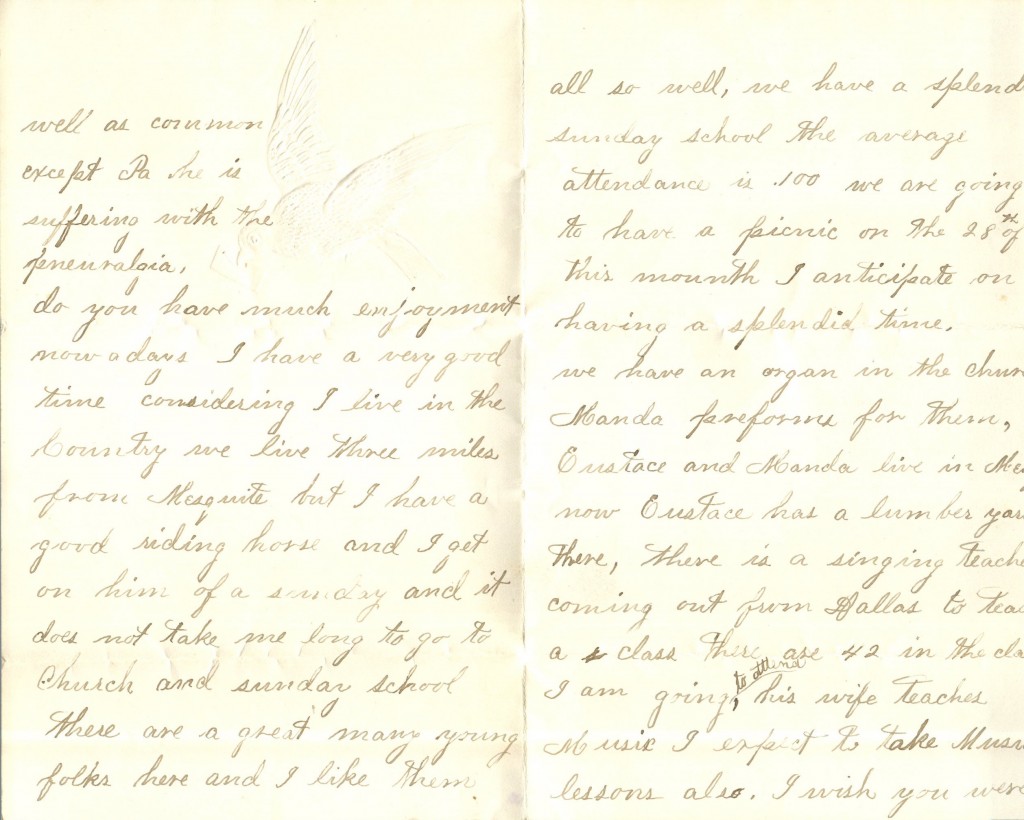 well as common
except Pa he is
suffering with the
pneuralgia.
do you have much enjoyment
now adays I have a very good
time considering I live in the
Country we live three miles
from Mesquite but I have a
good riding horse and I get
on him of a sunday and it
does not take me long to go to
Church and sunday school
there are a great many young
folks here and I like them
all so well, we have a splend
sunday school the average
attendance is .100 we are going
to have a picnic on the 28th of
this mounth I anticipate on
having a splendid time.
we have an organ in the chur
Manda preforms for them,
Eustace and Manda live in Mes
now Eustace has a lumber yar
there, there is a singing teache
coming out from Dallas to teac
a class there are 42 in the cla
I am going, to attend his wife teaches
Music I expect to take Musi
lessons also. I wish you were